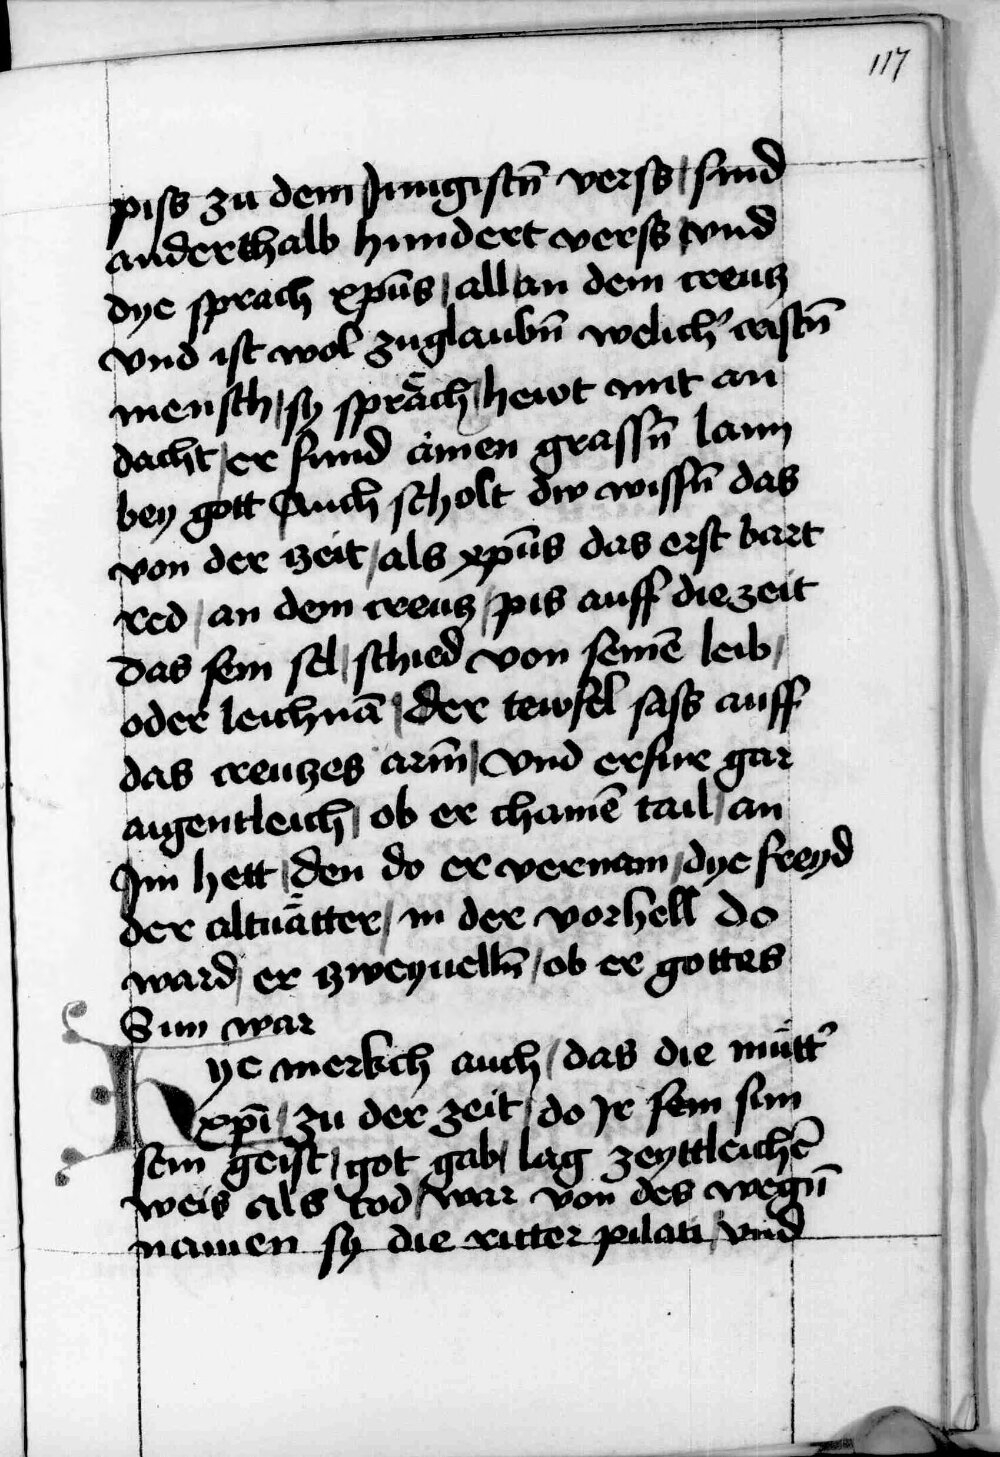 117
piss zu dem Jungistn̄ verss / sind
anderthalb hundert verss / vnd
dye sprach xp̄us / all an dem creutz
vnd ist wol zuglaubn̄ welich' cristn̄
mensch / sy spräch / hewt mit an
dacht / er fund ainen grassn̄ lann
bey gott Auch scholt dw wissn̄ das
von der tzeit / als xp̄us das erst bart
red / an dem creutz / pis auff die zeit
das sein sel / schied von seinē leib /
oder leichnā / der tewfel sass auff
das creutzes arm̄ / vnd erfur gar
aigentleich / ob er chainē tail / an
Jm hett / den do er vernam / dye freyd
der altuätter / in der vorhell do
ward / er tzweyuelln̄ / ob er gottes
Sun war
Hye merkch auch / das die mütt'
xp̄i / zu der zeit / do Jr sein sun
sein geist / got gab / lag zeyttleichē
weis als tod / war von des wegn̄
namen sy die ritter pilati / vnd